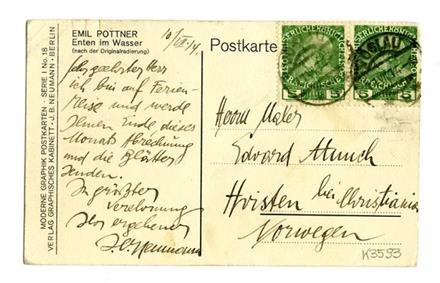 EMIL POTTNER
Enten im Wasser
(nach der Originalradierung)
MODERNE GRAPHIK POSTKARTEN - SERIE I No. 18
VERLAG GRAPHISCHES KABINETT • J. B. NEUMANN • BERLIN
10/VII 14.
Sehr geehrter Herr
ich bin auf Ferien-
reise und werde
Ihnen Ende dieses
Monats Abrechnung
und die Blätter
senden.
In größter
Verehrung
Ihr ergebener
J. B. Neumann
Postkarte
5 5
5 5
IGLAU
Herrn Maler
Edvard Munch
Hvitsten bei Christiania
Norwegen
K3593